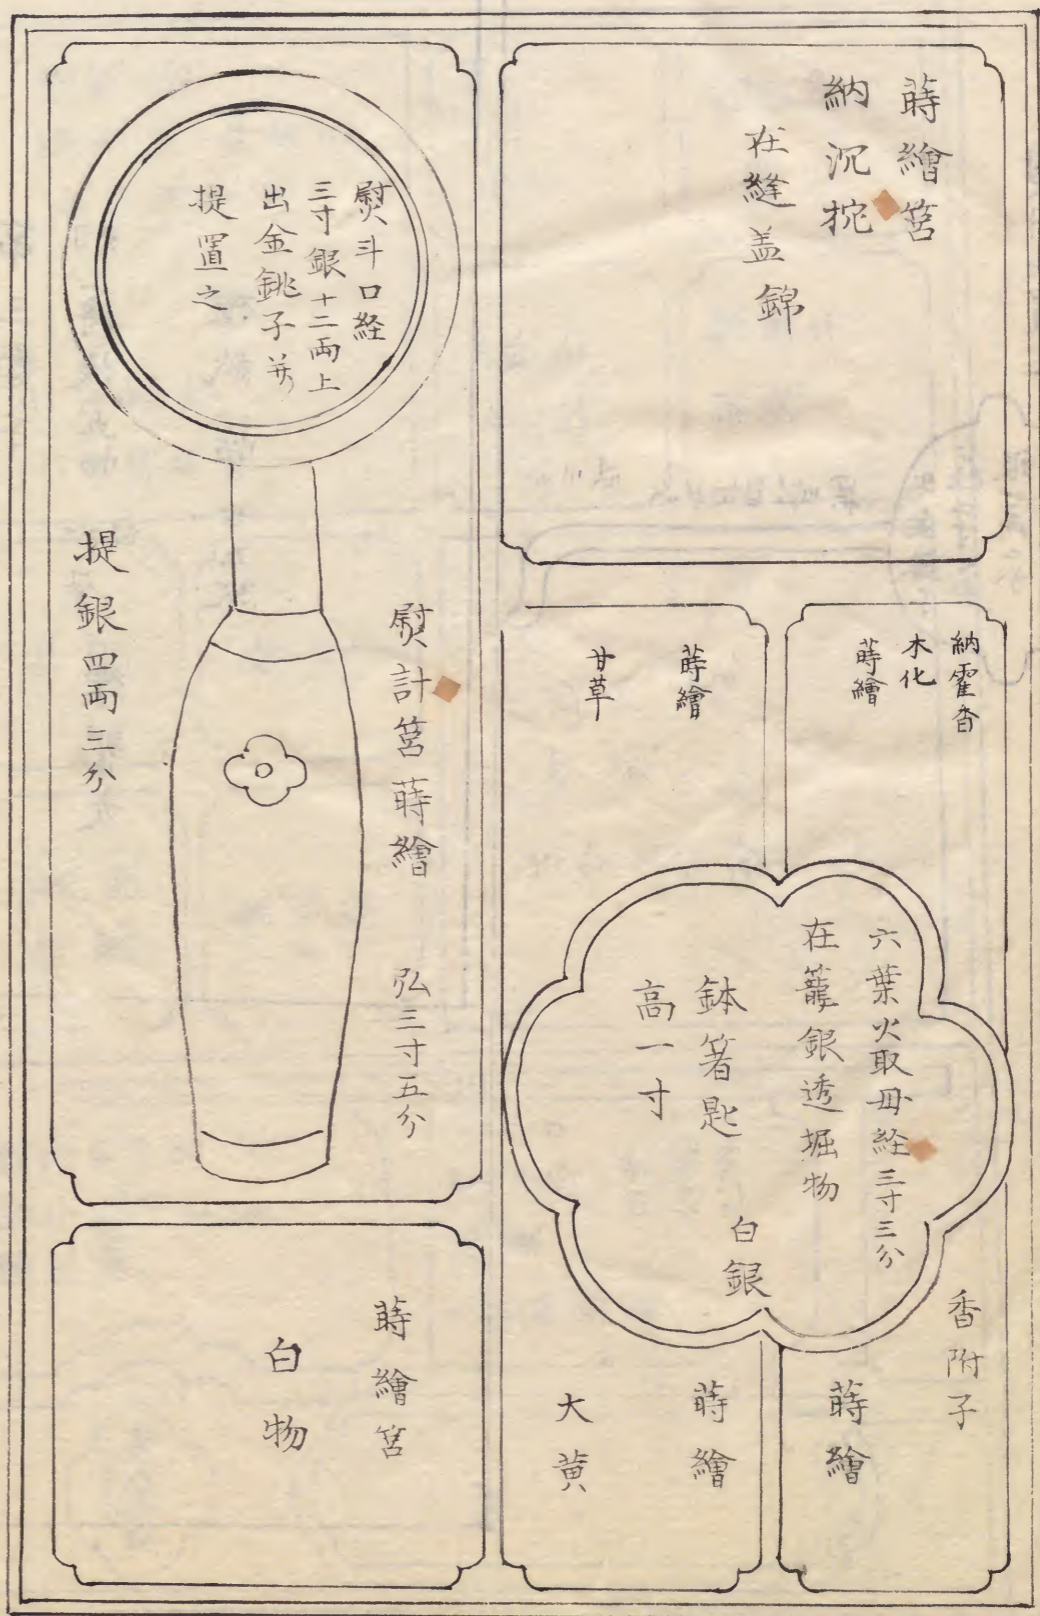 蒔繪筥
納沉挖
在縫盖錦
納霍香
木化
蒔繪
蒔繪
甘草
六葉火取毋経三寸三分
在籠銀透堀物
鉢箸匙
高一寸
白銀
香附子
蒔繪
蒔繪
大黄
熨斗口経
三寸銀十二両上
出金銚子并
提置之
熨計筥蒔繪 弘三寸五分
提銀四両三分
蒔繪筥
白物